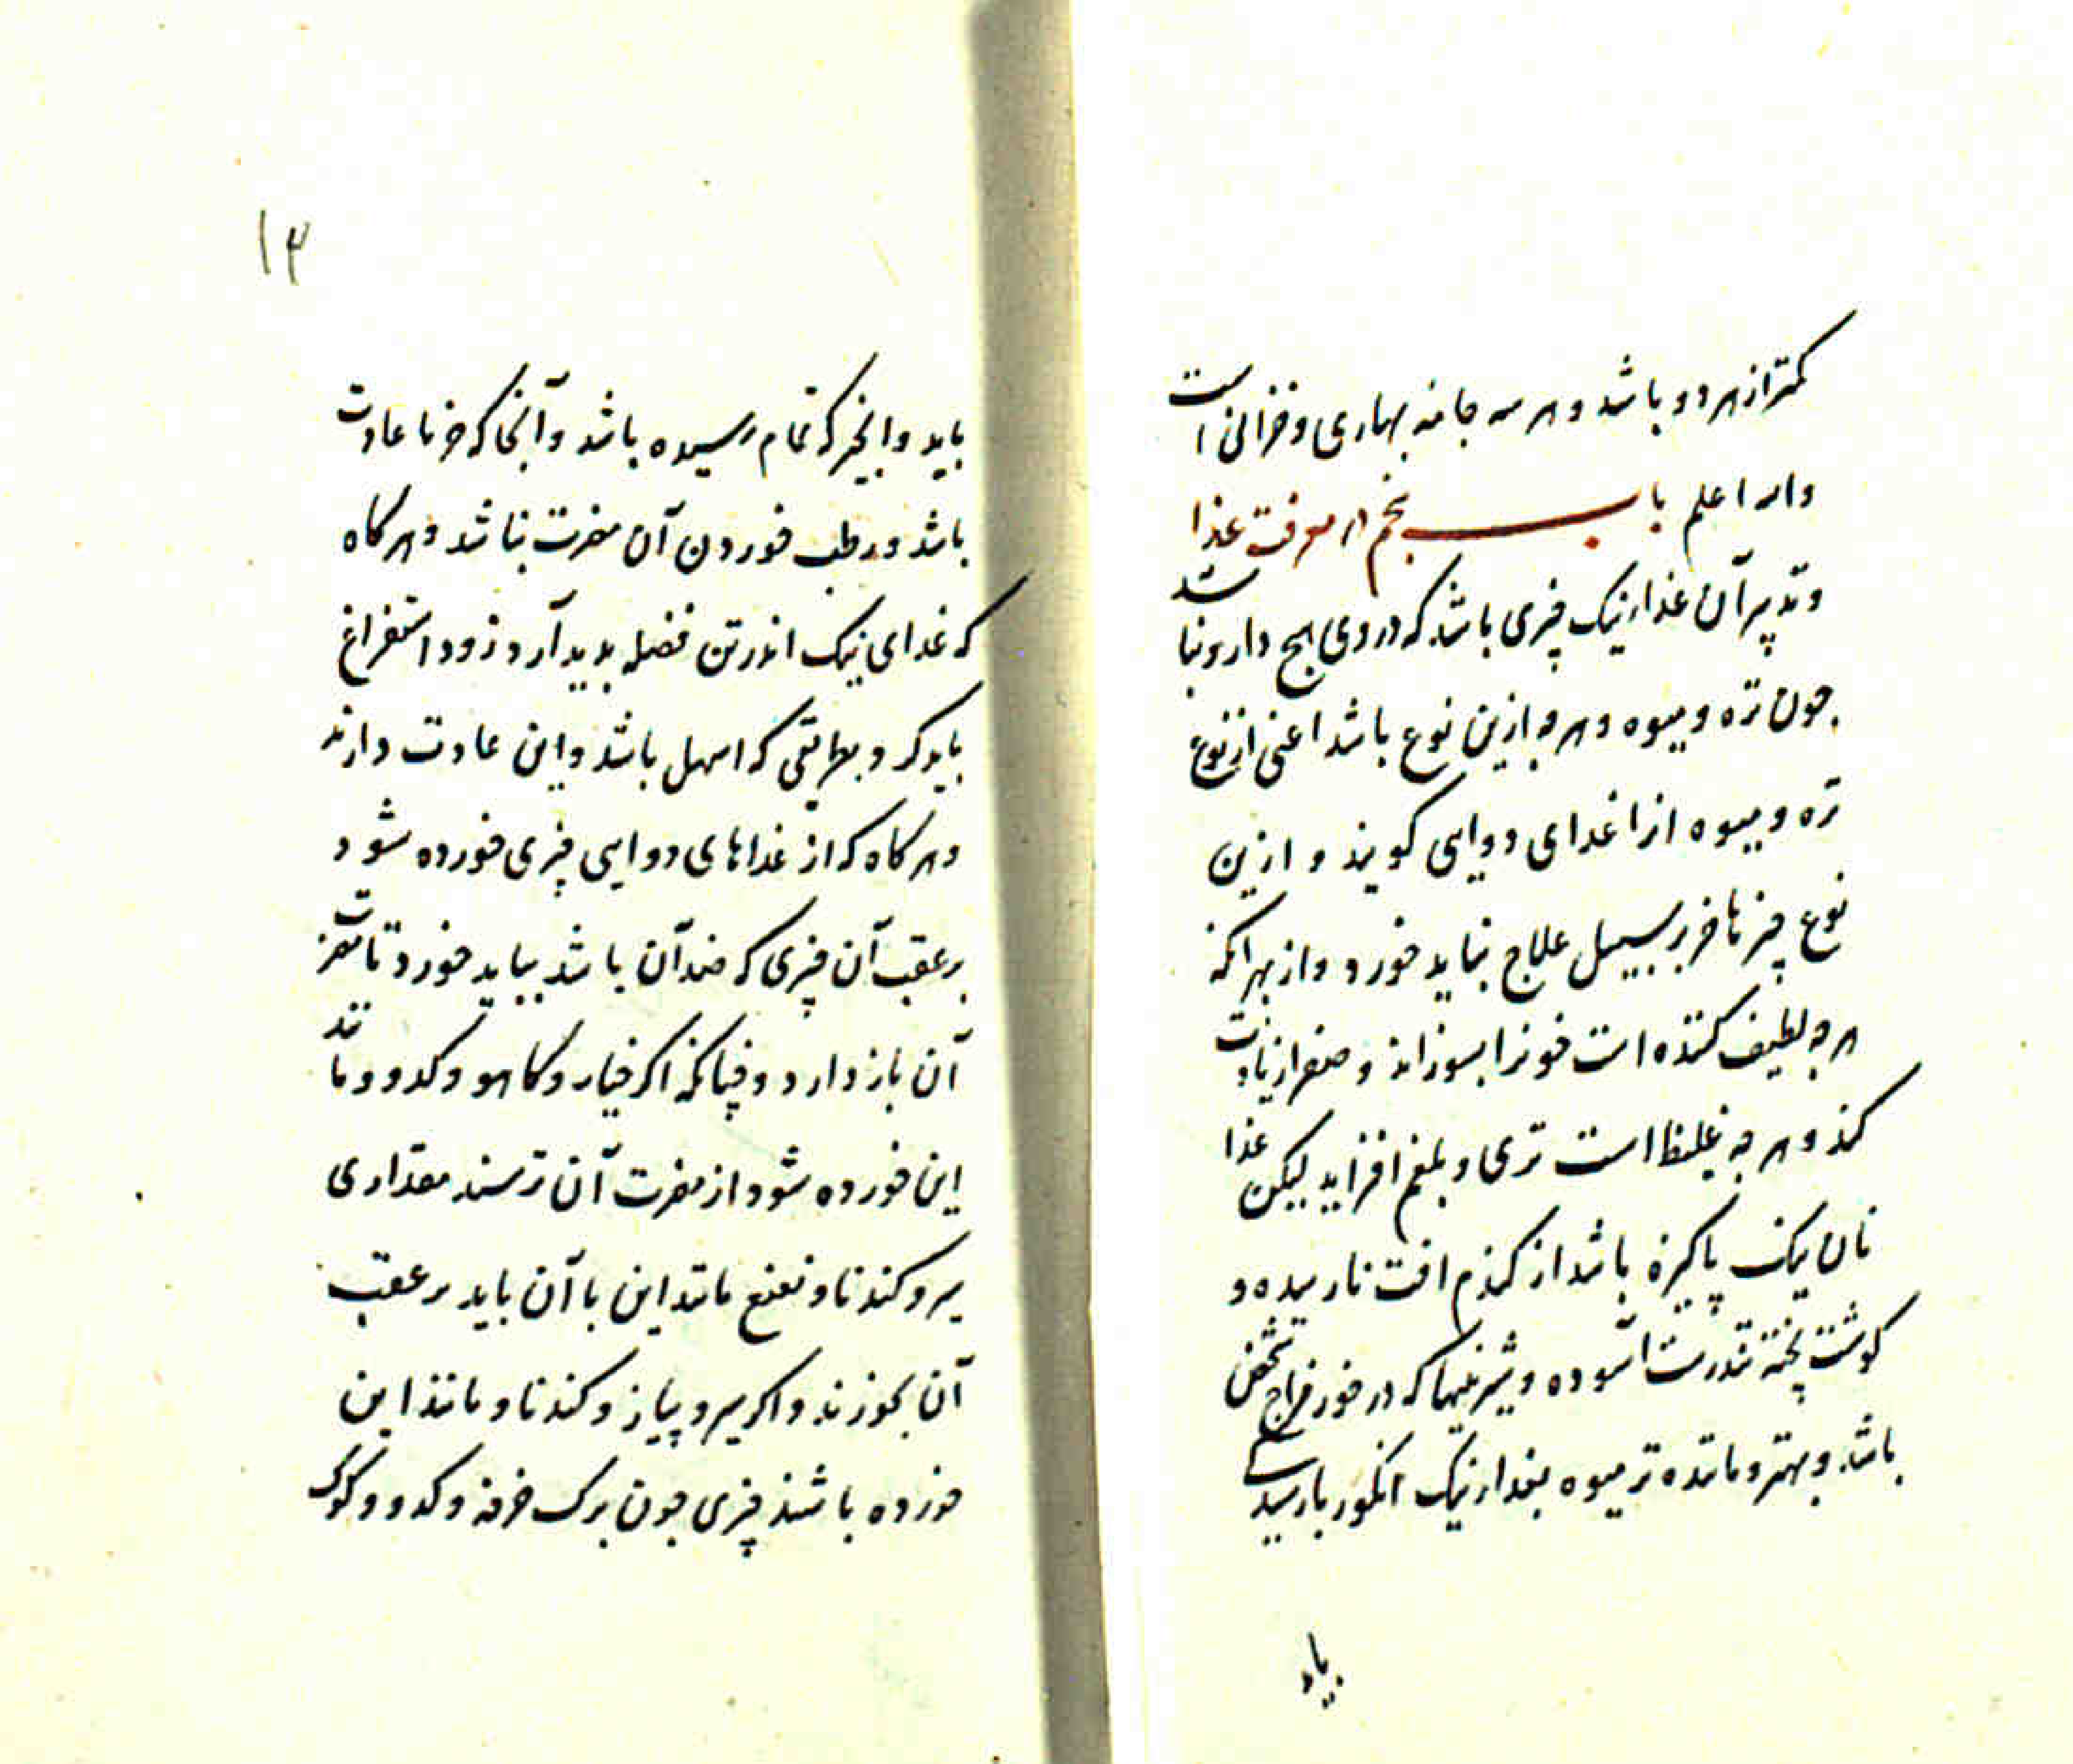 کمتر از هر دو باشد و هر سه جامه بهاری و خزانی است
والله اعلم باب پنجم در معرفت غذا
و تدبیر آن غذا نیک چیزی باشد که در وی هیچ دارو نباشد
چون تره و میوه و هرچه ازین نوع باشد اعنی از نوع
تره و میوه انرا غدای دوایی کویند و ازین
نوع چیزها جز بر سبیل علاج نباید خورد و از بهر انکه
هرچه لطیف کننده است خونرا بسوزاند و صفرا زیادت
کند و هرچه غلیظ است تری و بلغم افزاید لیکن غذا
نان نیک پاکیزه باشد از کندم افت نارسیده و
کوشت پخته تندرست آسوده و شیرینیها که در خور مزاج شخص
باشد و بهتر و مانده تر میوه بغدا نیک انکور بارسیدکی
بیاید
۱۳
باید و انجیر که تمام رسیده باشد و آنجا که خرما عادت
باشد و رطب خوردن آن مضرت نباشد و هرکاه
که غدای نیک اندر تن فضله بدید آرد زود استفراغ
باید کرد بطریقی که اسهل باشد و این عادت دارند
و هرکاه که از غداهای دوایی چیزی خورده شود
بر عقب آن چیزی که ضد آن باشد بباید خورد تا مضرت
آن باز دارد و چنانکه اکر خیار و کاهو و کدو و مانند
این خورده شود از مضرت آن ترسند مقداری
سیر و کندنا و نعنع مانند این با آن باید بر عقب
آن بخورند و اکر سیر و پیاز و کندنا و مانند این
خورده باشند چیزی چون برک خرفه و کدو و کوک